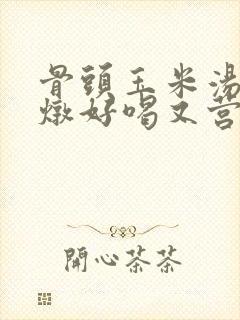 骨頭玉米湯
燉好喝又营
開心茶茶